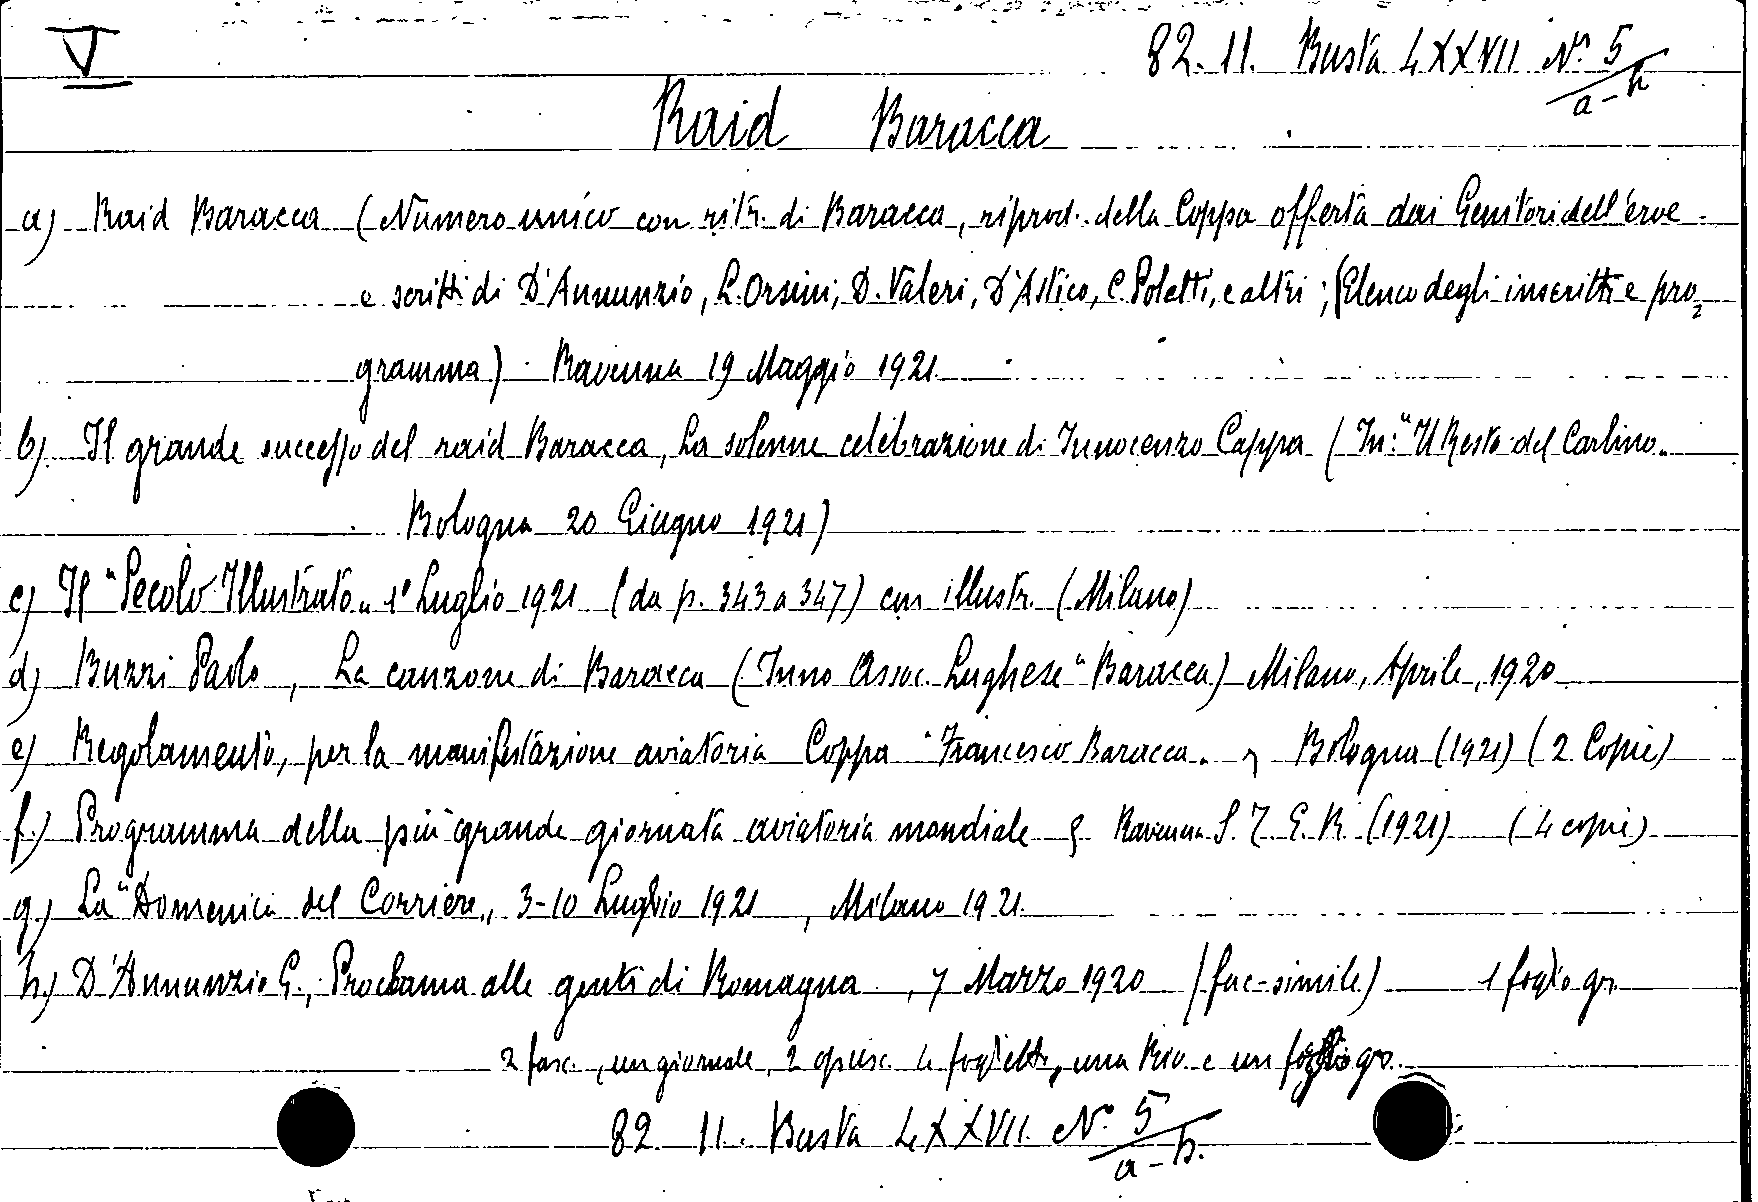 V
82.11. Busta LXXVII N.º 5/a-h
Raid Baracca
a) Raid Baracca (Numero unico con ritr. di Baracca, riprod. della Coppa offerta dai Genitori dell'eroe
e scritti di D'Annunzio, L. Orsini, D. Valeri, D'Astico, C. Poletti, e altri; (Elenco degli inscritti e pro=
gramma). Ravenna 19 Maggio 1921
b) Il grande successo del raid Baracca, La solenne celebrazione di Innocenzo Cappa (In: "Il Resto del Carlino„
Bologna 20 Giugno 1921)
c) Il "Secolo Illustrato„ 1º Luglio 1921 (da p. 343 a 347) con illustr. (Milano)
d) Buzzi Paolo, La canzone di Baracca (Inno Assoc. Lughese "Baracca) Milano, Aprile, 1920
e) Regolamento, per la manifestazione aviatoria Coppa "Francesco Baracca„ Bologna (1921) (2 Copie)
f.) Programma della più grande giornata aviatoria mondiale Ravenna S.T.E.R. (1921) (4 copie)
g.) La "Domenica del Corriere„ 3-10 Luglio 1921, Milano 1921
h.) D'Annunzio G., Proclama alle genti di Romagna, 7 Marzo 1920 (fac-simile) 1 foglio gr.
2 fasc., un giornale, 2 opusc. 4 foglietti, una Riv. e un foglio gr.
82. 11. Busta LXXVII N.º 5/a-h.